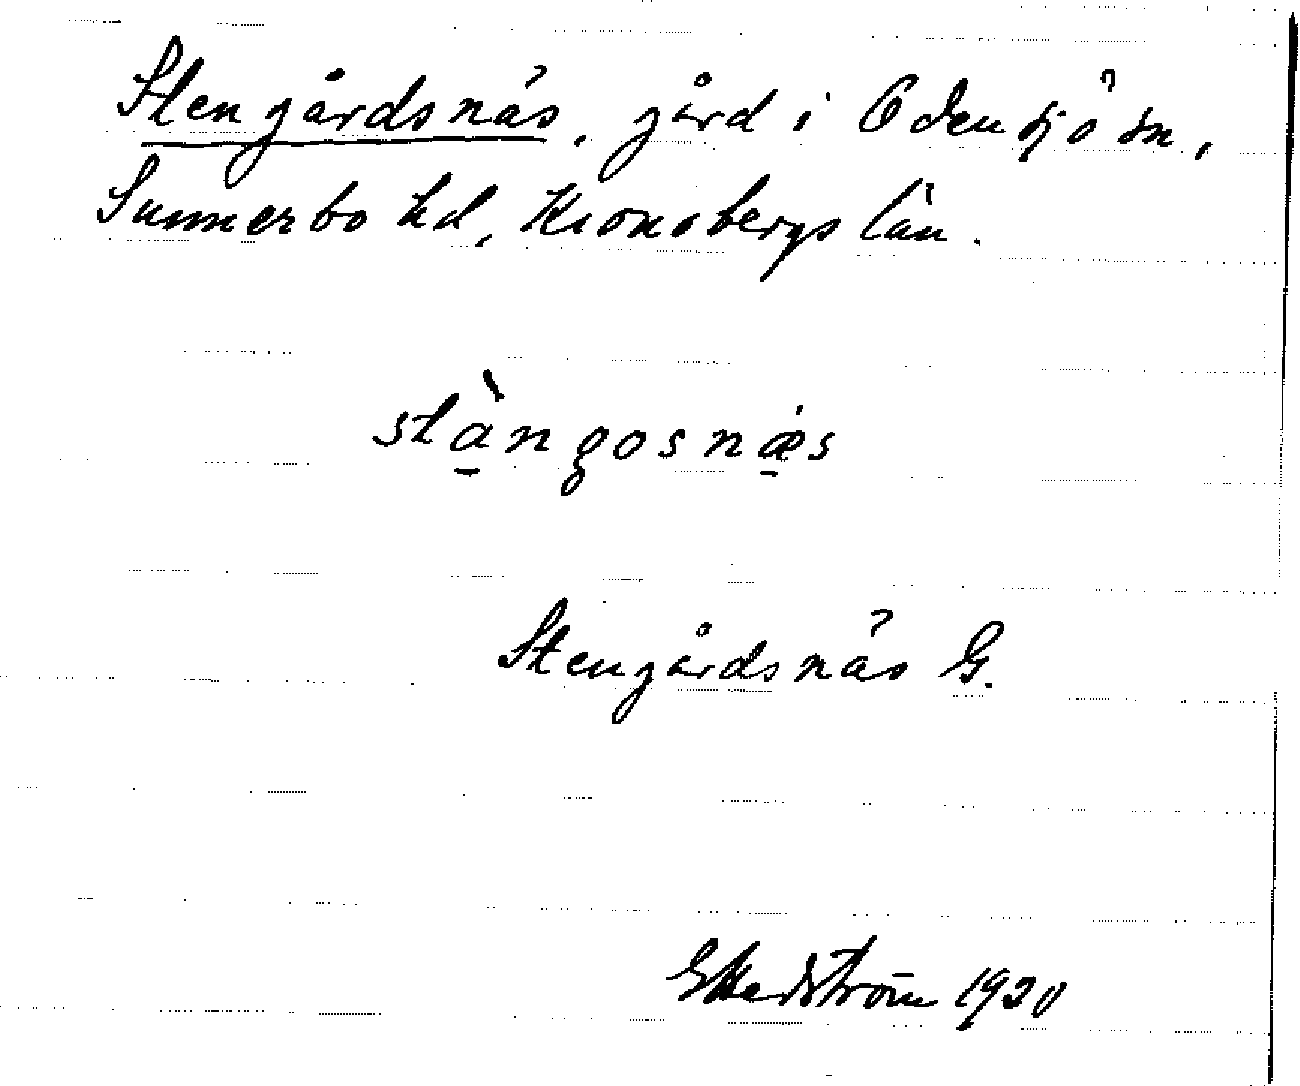 Stengårdsnäs, gård i Odensjö sn,
Sunnerbo hd, Kronobergs län.
stàngosnæs
Stengårdsnäs G.
G Hedström 1920